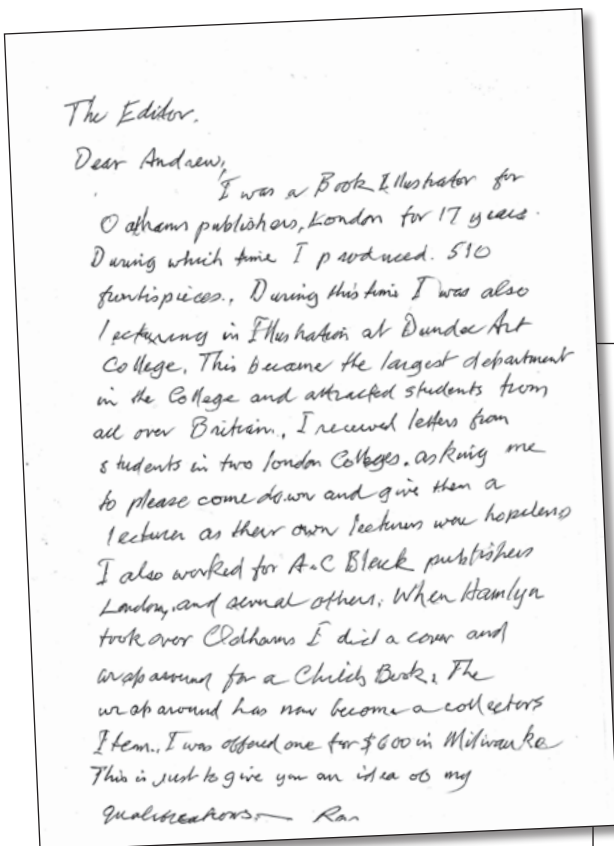 The Editor.
Dear Andrew,
I was a Book Illustrator for
Odhams publishers, London for 17 years.
During which time I produced. 510
funtispieces., During this time I was also
lecturing in Illustration at Dundee Art
College. This became the largest department
in the College and attracted students from
all over Britain., I received letters from
students in two london Colleges. asking me
to please come down and give them a
lecturer as their own lecturers were hopeless
I also worked for A&C Black publishers
London, and several others. When Hamlyn
took over Odhams I did a cover and
wraparound for a Childs Book. The
wraparound has now become a collectors
Item., I was offered one for $600 in Milwauke
This is just to give you an idea of my
qualifications. Ron